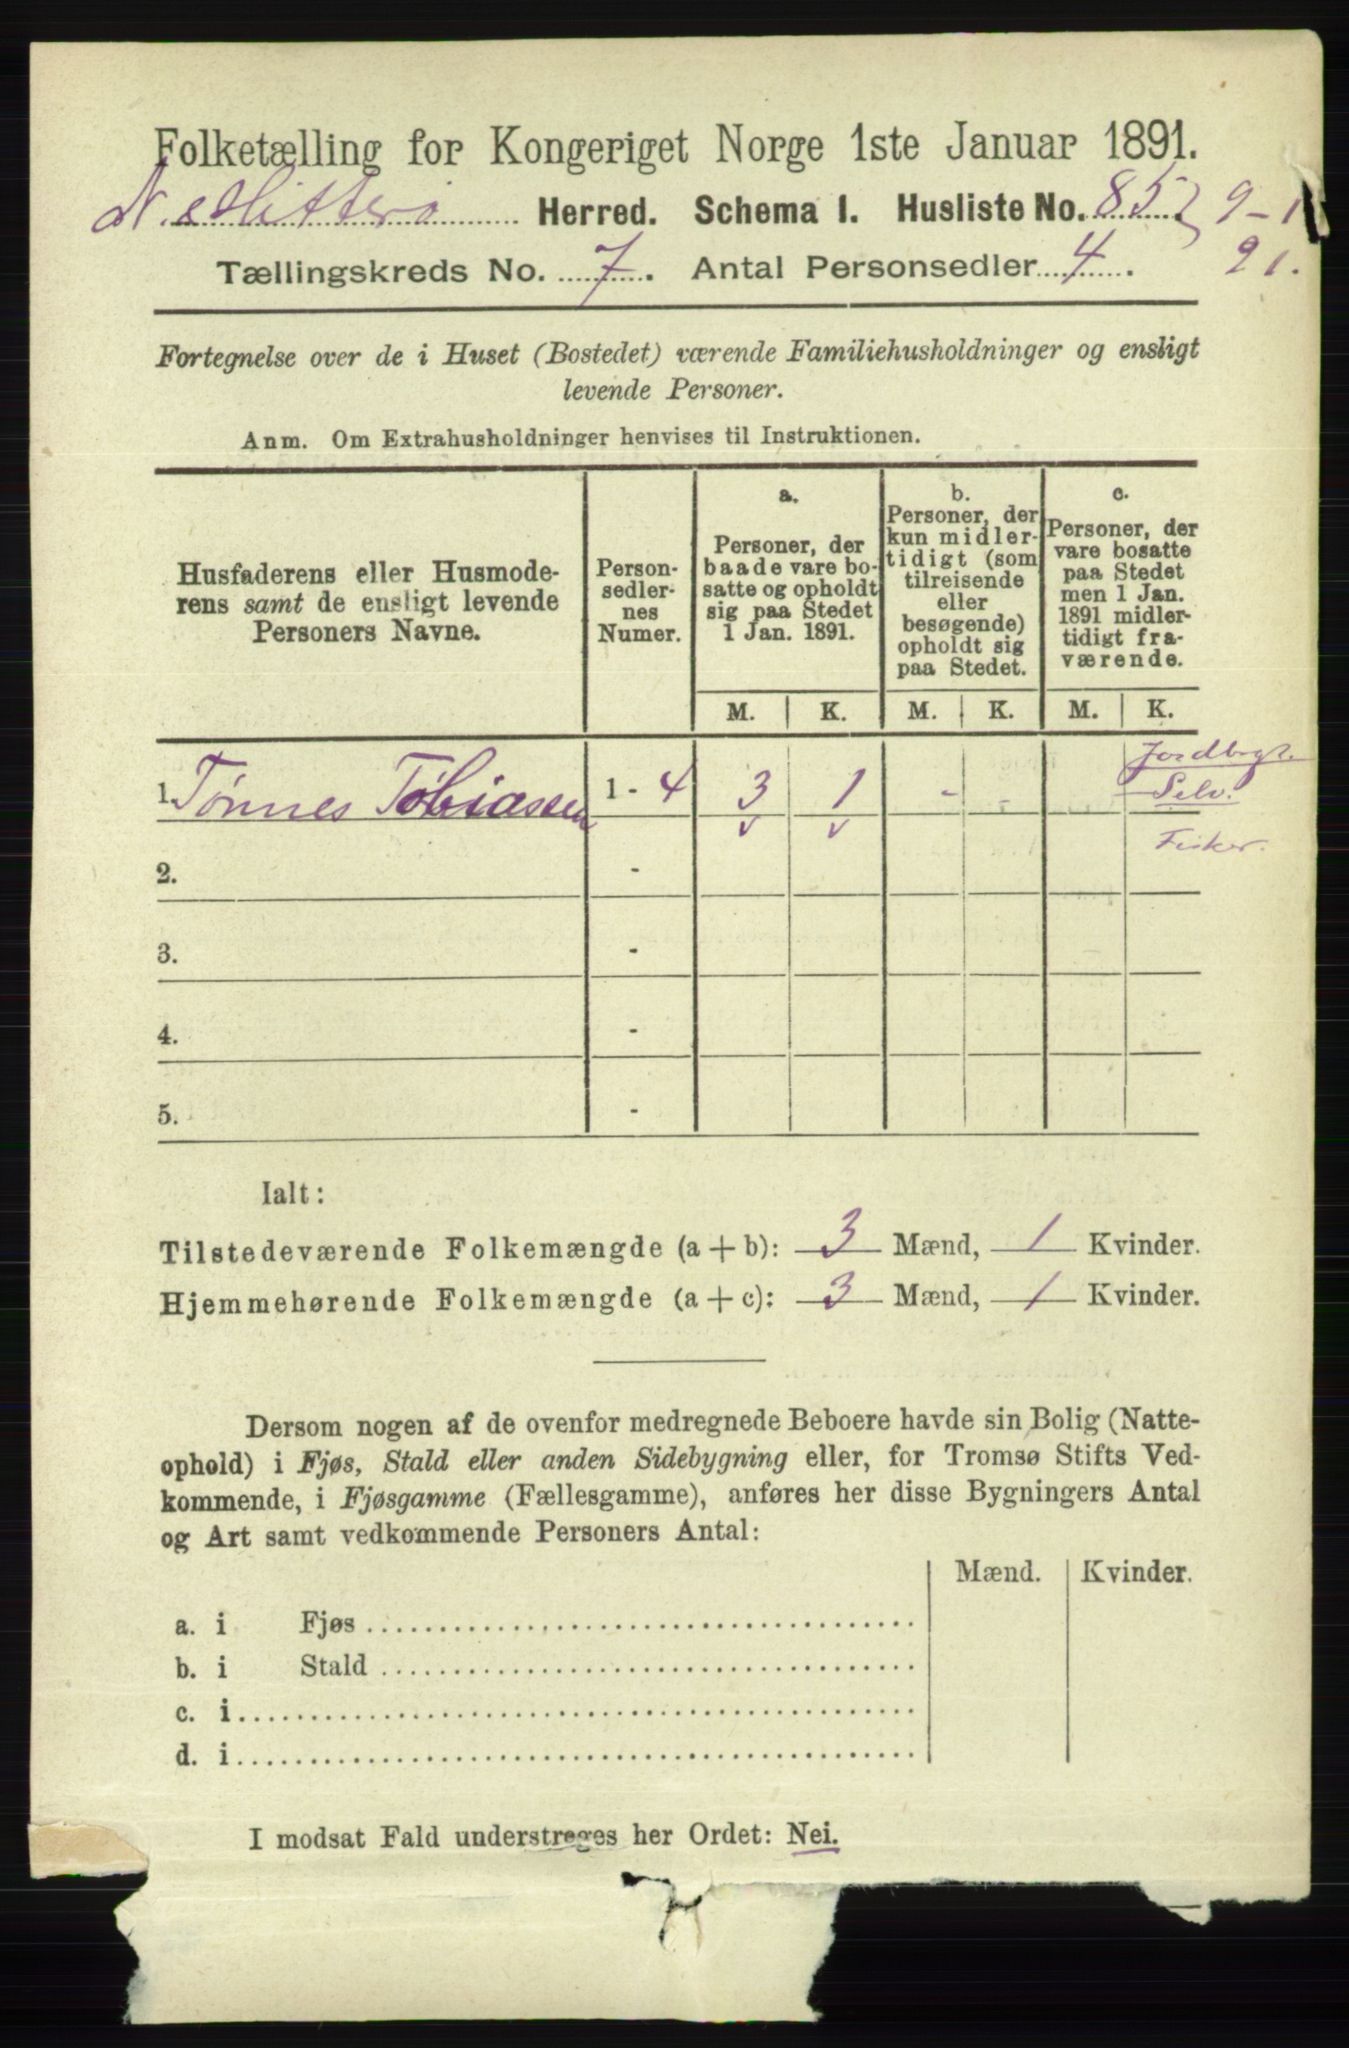 Folketælling for Kongeriget Norge 1ste Januar 1891.
N. & Hitterø Herred. Schema I. Husliste No. 85 9-1
Tællingskreds No. 7. Antal Personsedler 4. 91.
Fortegnelse over de i Huset (Bostedet) værende Familiehusholdninger og ensligt
levende Personer.
Anm. Om Extrahusholdninger henvises til Instruktionen.
Husfaderens eller Husmode-
rens samt de ensligt levende
Personers Navne.
Person-
sedler-
nes
Numer.
a.
Personer, der
baade vare bo-
satte og opholdt
sig paa Stedet
1 Jan. 1891.
b.
Personer, der
kun midler-
tidigt (som
tilreisende
eller
besøgende)
opholdt sig
paa Stedet.
c.
Personer, der
vare bosatte
paa Stedet
men 1 Jan.
1891 midler-
tidigt fra-
værende.
M. K. M. K. M. K.
Jordbrgr.
1. Tønnes Tobiassen 1 - 4 3 1 - - Selv.
v v
2. - Fisker.
3. -
4. -
5. -
Ialt:
Tilstedeværende Folkemængde (a + b): 3 Mænd, 1 Kvinder.
Hjemmehørende Folkemængde (a + c): 3 Mænd, 1 Kvinder.
Dersom nogen af de ovenfor medregnede Beboere havde sin Bolig (Natte-
ophold) i Fjøs, Stald eller anden Sidebygning eller, for Tromsø Stifts Ved-
kommende, i Fjøsgamme (Fællesgamme), anføres her disse Bygningers Antal
og Art samt vedkommende Personers Antal:
Mænd. Kvinder.
a. i Fjøs
b. i Stald
c. i
d. i
I modsat Fald understreges her Ordet: Nei.